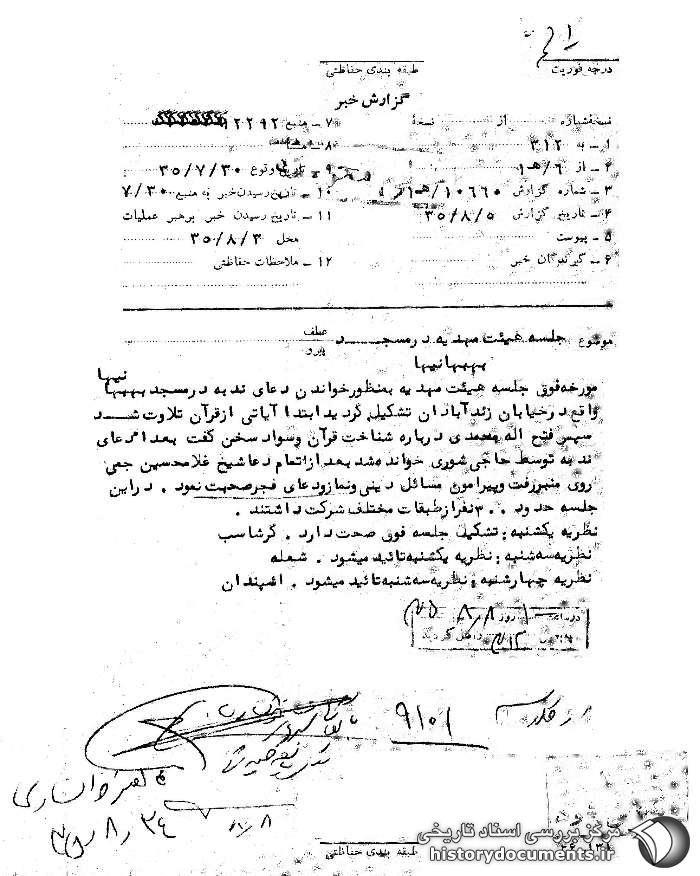 درجه فوریت
طبقه بندی حفاظتی
گزارش خبر
نسخه شماره از نسخهٔ
۱ـ به ۳۱۲
۲ـ از ۶/هـ۱
۳ـ شماره گزارش ۱۰۶۶۰/هـ۱
۴ـ تاریخ گزارش ۳۵/۸/۵
۵ـ پیوست
۶ـ گیرندگان خبر
۷ـ منبع ۱۲۲۹۲
۸ـ
۹ـ تاریخ وقوع ۳۵/۷/۳۰
۱۰ـ تاریخ رسیدن خبر به منبع ۷/۳۰
۱۱ـ تاریخ رسیدن خبر برهبر عملیات
محل ۳۵/۸/۳
۱۲ـ ملاحظات حفاظتی
موضوع جلسه هیئت مهدیه در مسجد
بهبهانیها
عطف
پیرو
مورخه فوق جلسه هیئت مهدیه بمنظور خواندن دعای ندبه در مسجد بهبها نیها
واقع در خیابان زند آبادان تشکیل گردید ابتدا آیاتی از قرآن تلاوت شد
سپس فتح اله محمدی درباره شناخت قرآن وسواد سخن گفت بعداً دعای
ندبه توسط حاجی شوری خوانده شد بعد از اتمام دعا شیخ غلامحسین جمی
روی منبر رفت و پیرامون مسائل دینی و نماز ودعای فجر صحبت نمود . در این
جلسه حدود ۳۰۰ نفر از طبقات مختلف شرکت داشتند .
نظریه یکشنبه : تشکیل جلسه فوق صحت دارد . گرشاسب
نظریه سه شنبه : نظریه یکشنبه تائید میشود . شعله
نظریه چهارشنبه : نظریه سه شنبه تائید میشود . اسپندان
روز ۸/۸
۹۱۰۱
۳۵/۸/۲۴
طبقه بندی حفاظتی
مرکز بررسی اسناد تاریخی
historydocuments.ir